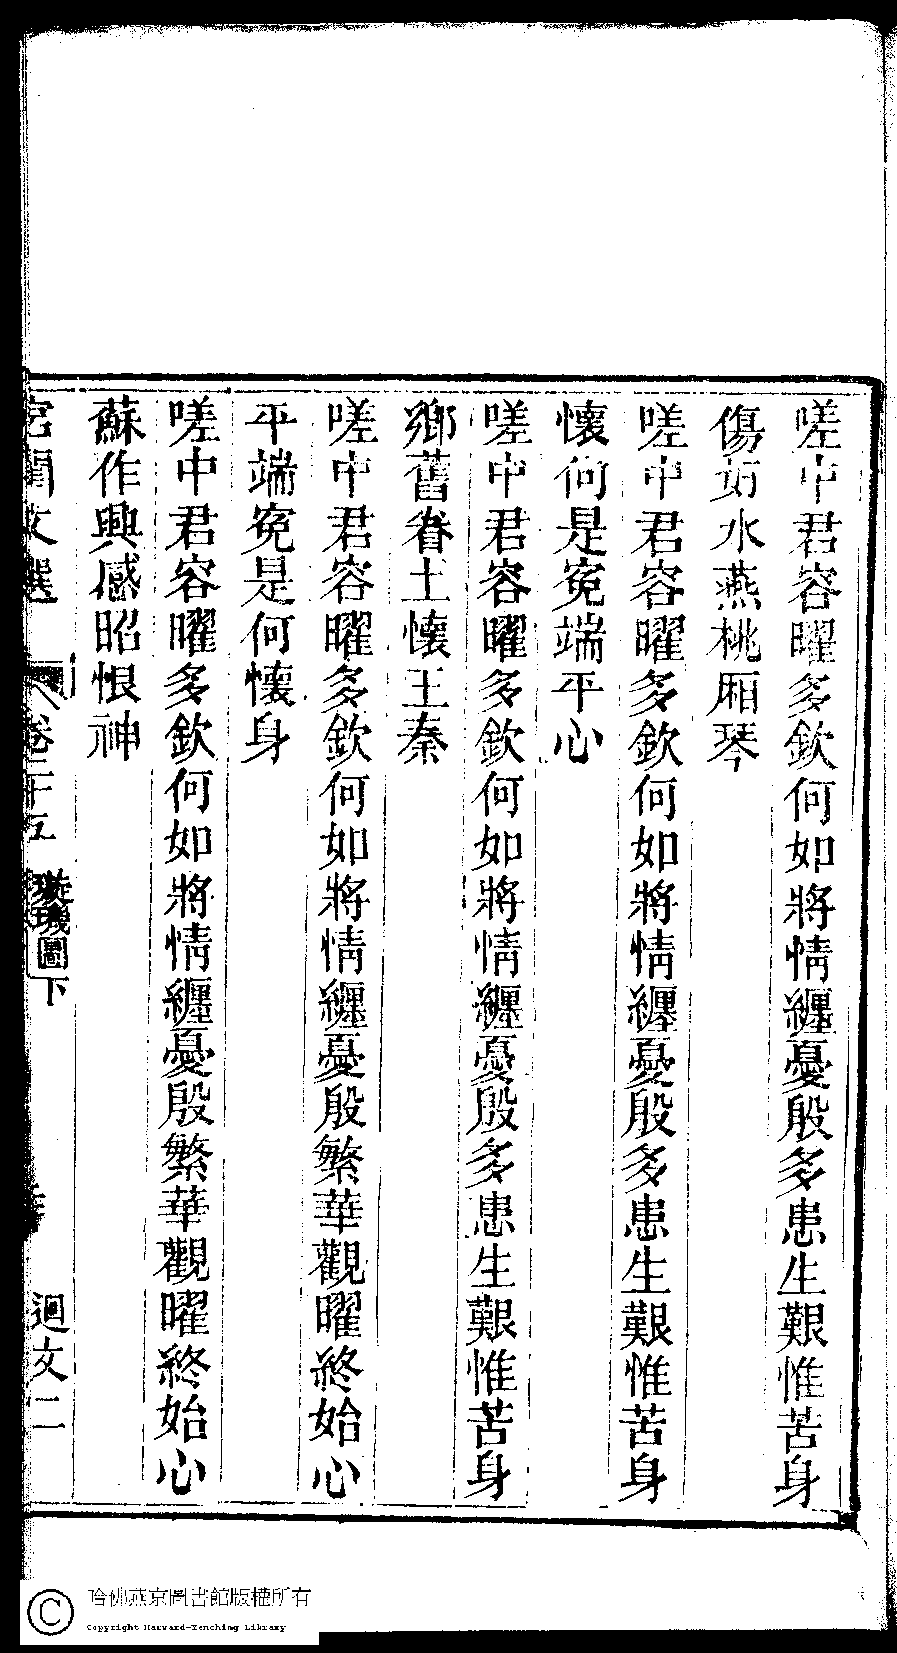 嗟中君容曜多欽何如將情纏憂殷多患生艱惟苦身
傷好水燕桃厢琴
嗟中君容曜多欽何如將情纏憂殷多患生艱惟苦身
懐何是寃端平心
嗟中君容曜多欽何如將情纏憂殷多患生艱惟苦身
鄉舊眷土懐王秦
嗟中君容曜多欽何如將情纏憂殷繁華觀曜終始心
平端寃是何懐身
嗟中君容曜多欽何如將情纏憂殷繁華觀曜終始心
蘇作興感昭恨神
宮閨文選 卷二十五 璇璣圖下 迴文二
哈佛燕京圖書館版權所有
Copyright Harvard-Yenching Library